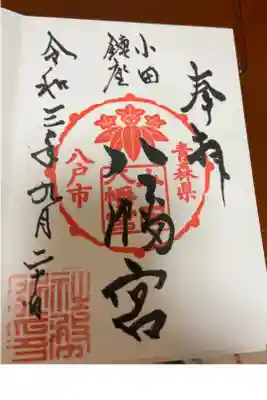 奉拝
青森県
小田
鎮座
八幡宮
八戸市
令和三年九月二十日